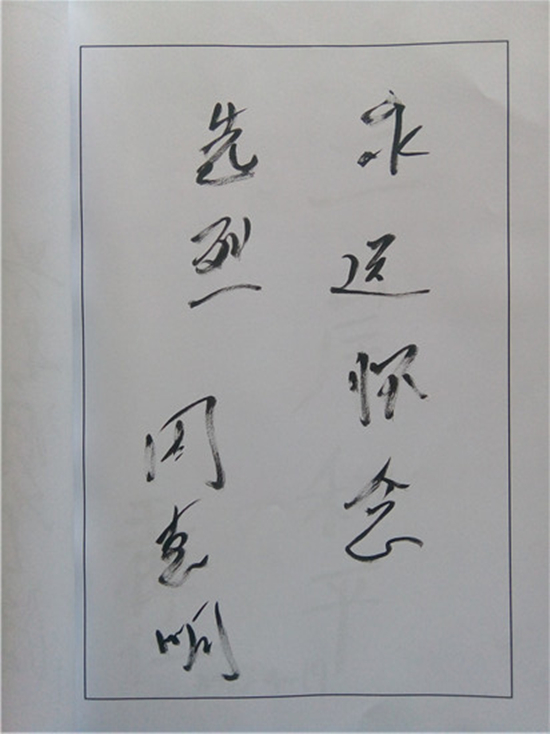 永远怀念
先烈
周志明